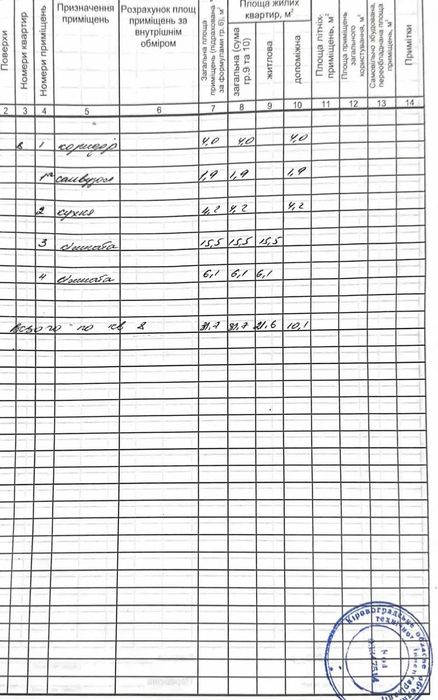 Поверхи
Номери квартир
Номери приміщень
Призначення приміщень
Розрахунок площ приміщень за внутрішнім обміром
Загальна площа приміщень (підрахована за формулами гр.6), м²
Площа жилих квартир, м²
загальна (сума гр.9 та 10)
житлова
допоміжна
Площа літніх приміщень, м²
Площа приміщень загального користування, м²
Самовільно збудована, переобладнана площа приміщень, м²
Примітки
2 3 4 5 6 7 8 9 10 11 12 13 14
8 1 коридор 4,0 4,0 4,0
1а санвузол 1,9 1,9 1,9
2 кухня 4,2 4,2 4,2
3 кімната 15,5 15,5 15,5
4 кімната 6,1 6,1 6,1
Всього по кв 8 31,7 31,7 21,6 10,1
Кіровоградське обласне
технічної
Код